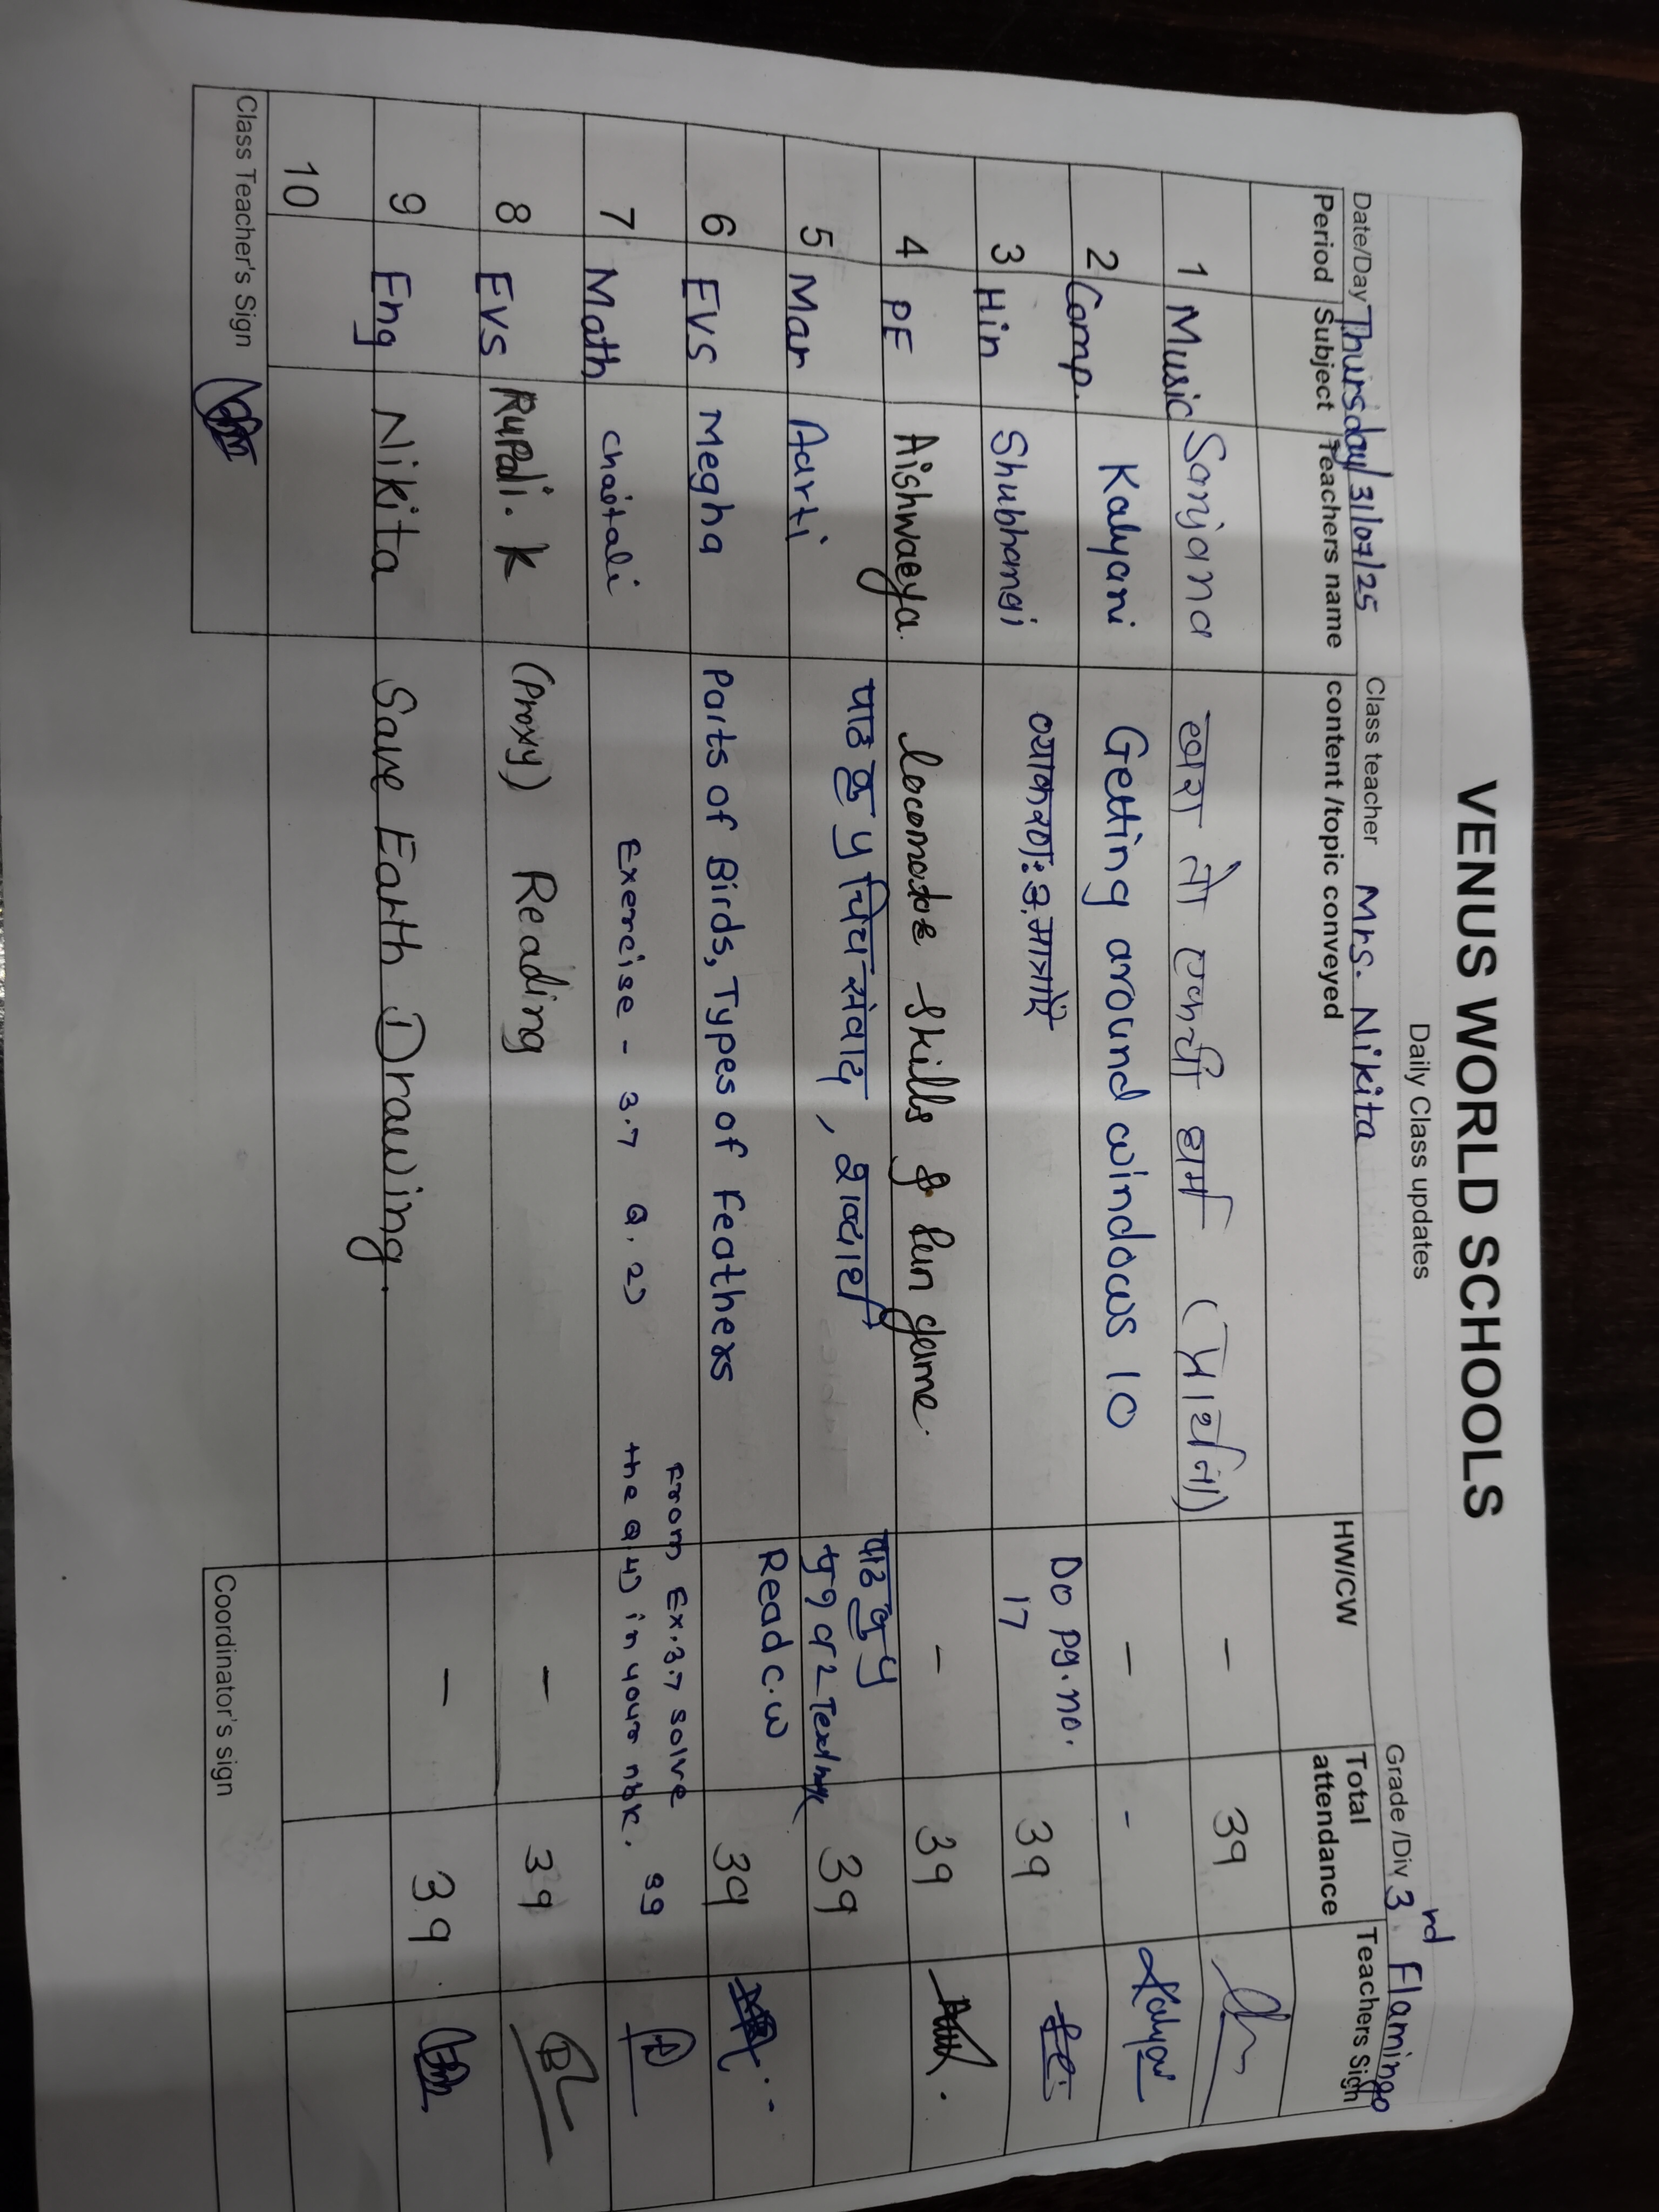 VENUS WORLD SCHOOLS
Daily Class updates
Date/Day Thursday 31/07/25 Class teacher Mrs. Nikita Grade /Div 3rd Flamingo
Period Subject Teachers name content /topic conveyed HW/CW Total attendance Teachers Sign
1 Music Sanjana खरा तो एकची धर्म (प्रार्थना) - 39
2 Comp. Kalyani Getting around windows 10 - - Kalyani
3 Hin Shubhangi व्याकरण: Do pg. no. 17 39
4 PE Aishwaeya. locomotor skills & fun game. - 39
5 Mar Aarti पाठ क्र ५ चित्रसंवाद, शब्दार्थ पाठ क्र ५ प्र १ व २ 39
6 EVS Megha Parts of Birds, Types of Feathers Read c.w 39
7 Math chaitali Exercise - 3.7 Q. 2) From Ex. 3.7 solve the Q 4) in your nbk. 39
8 EVS Rupali. k (Proxy) Reading - 39
9 Eng Nikita Save Earth Drawing. - 39
10
Class Teacher's Sign Coordinator's sign